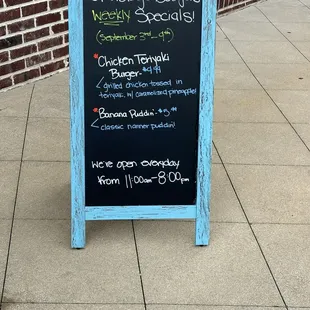 Weekly Specials!
(September 3rd - 9th)
* Chicken Teriyaki
Burger - $9.99
grilled chicken tossed in
teriyaki, w/ caramelized pineapple!
* Banana Puddin' - $5.99
classic nanner puddin'!
We're open everyday
from 11:00am - 8:00pm